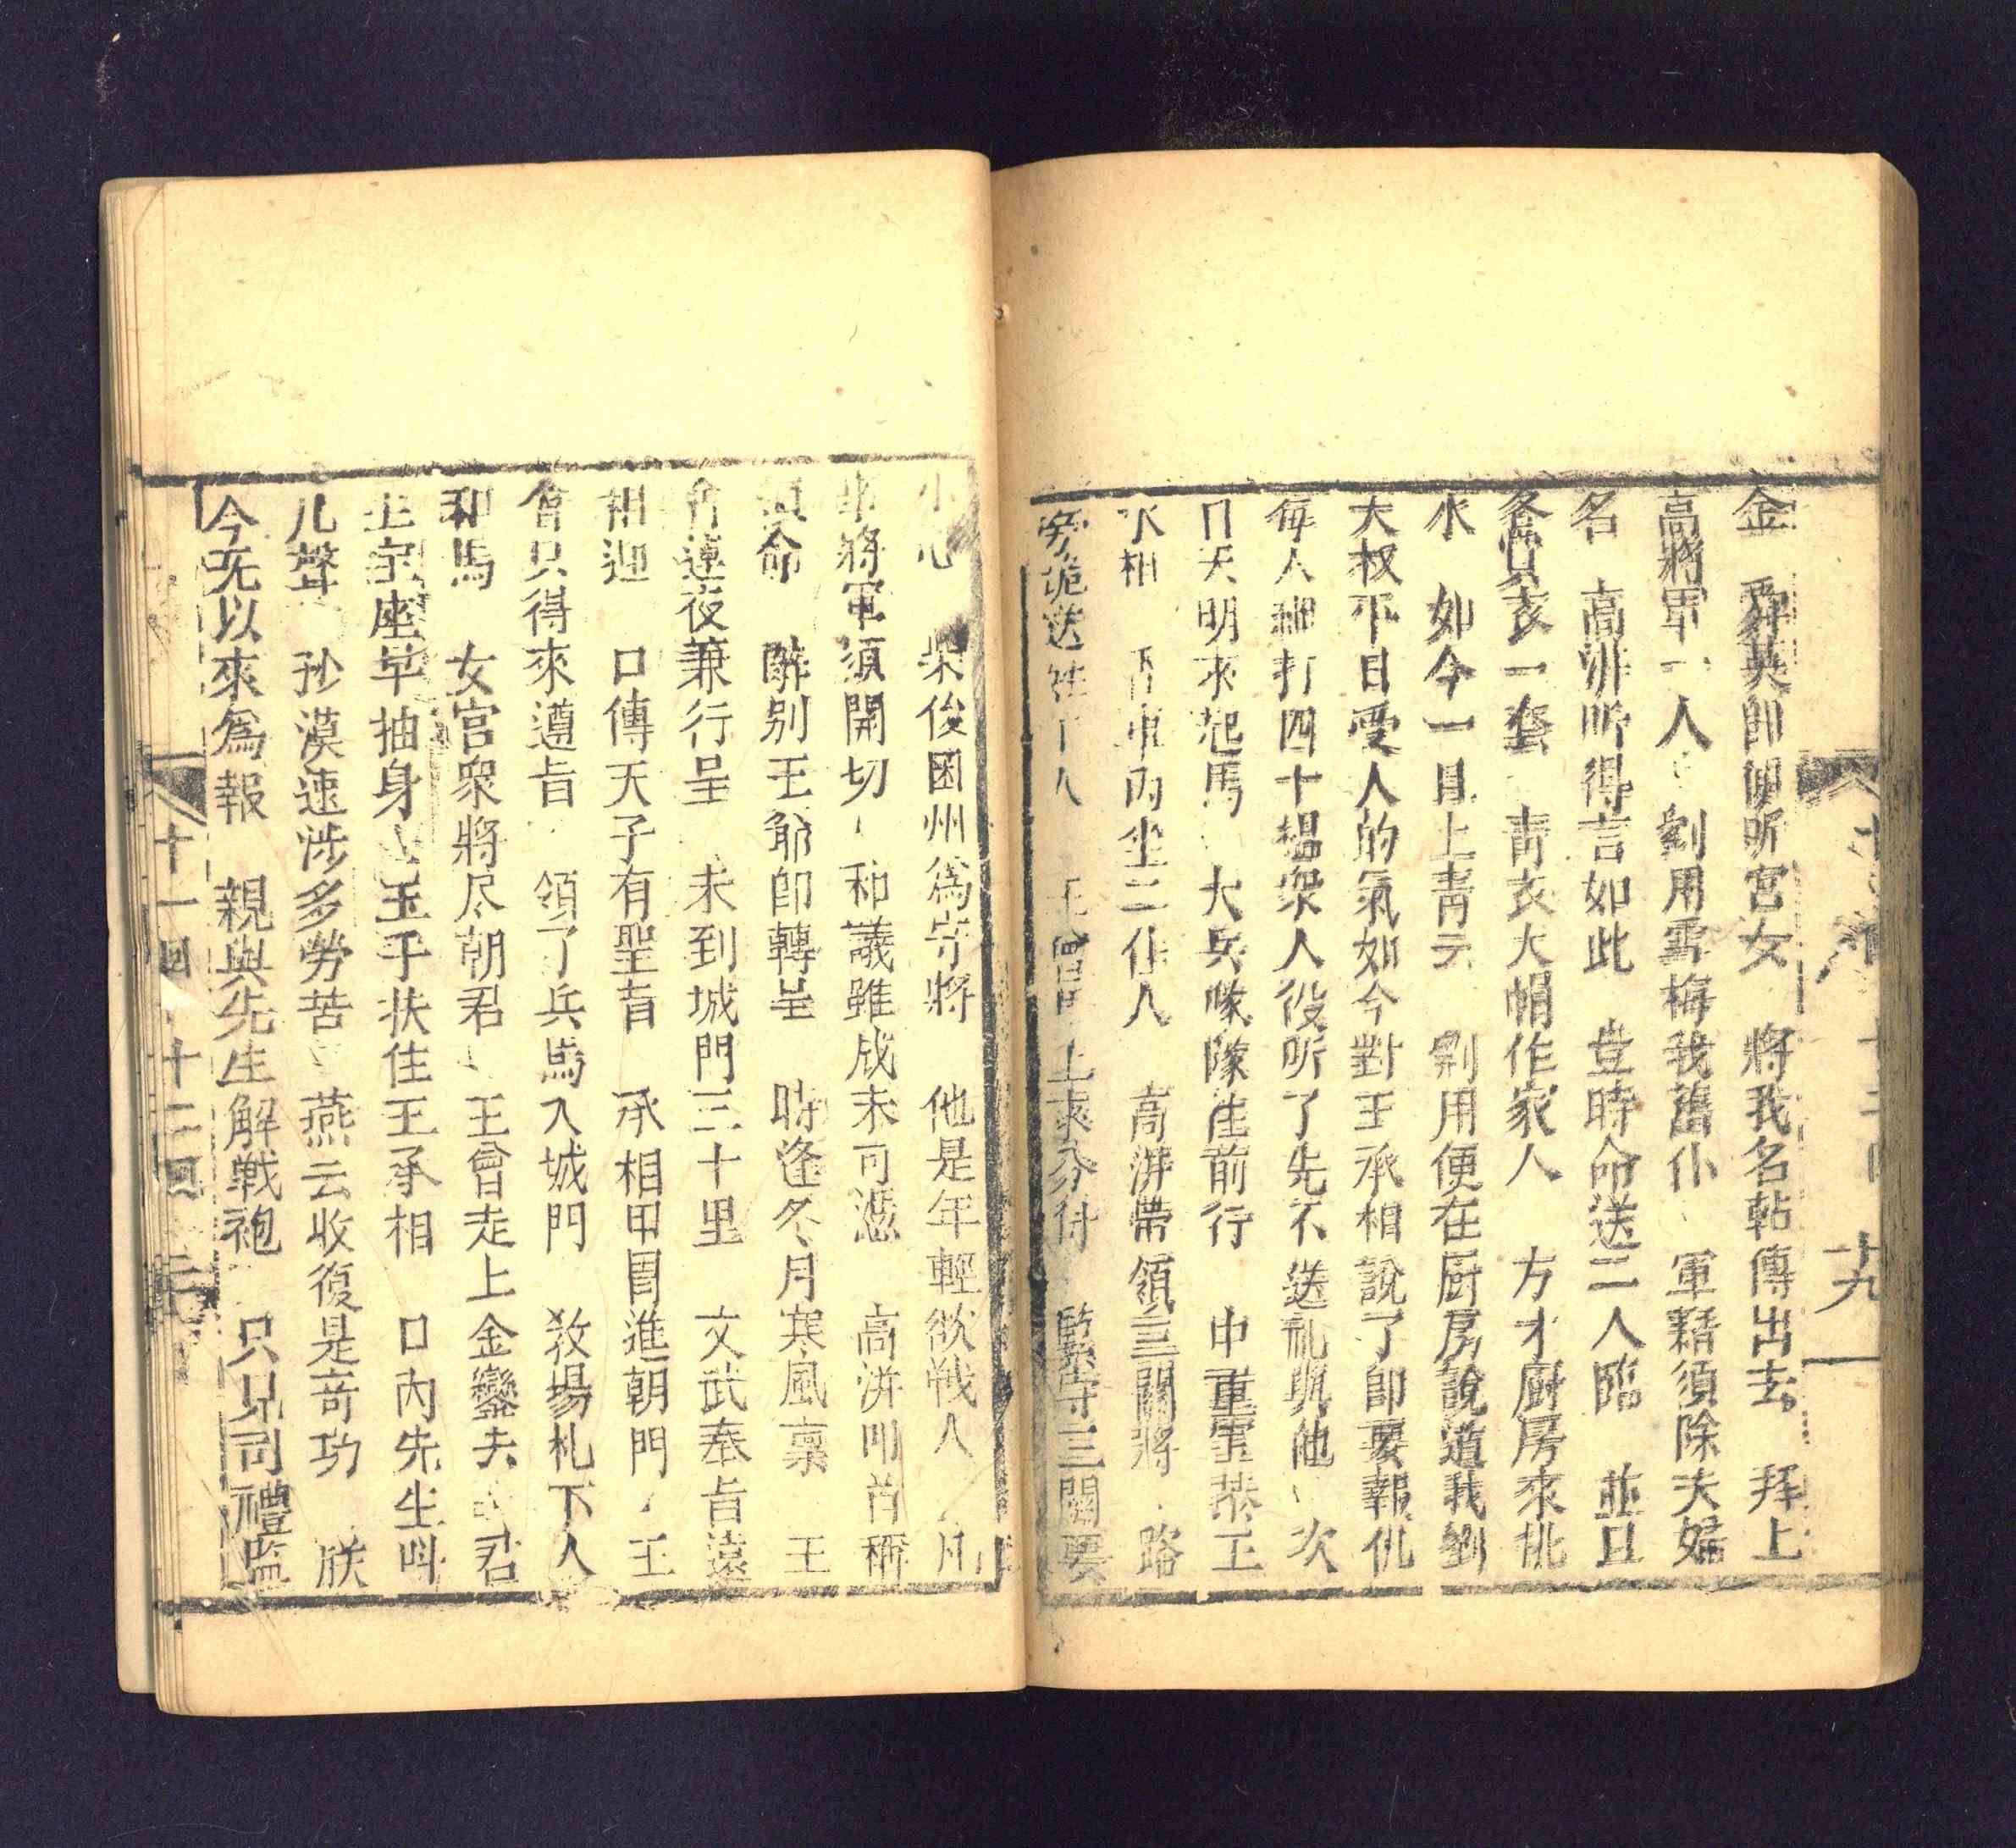 十九
金 舜英即便听宮女 將我名帖傳出去 拜上
高將軍一人 劉用雪梅我舊仆 軍籍須除夫婦
名 高湃听得言如此 登時命送二人臨 並且
各賞衣一套 青衣大帽作家人 方才廚房來挑
水 如今一旦上青云 劉用便在廚房說道我劉
大叔平日受人的氣如今對王承相說了即要報仇
每人綑打四十棍衆人役听了先不送礼
日天明來起馬 大兵隊隊往前行 中軍
水相 下車內坐二仆人 高湃帶領三關將 路
勞跪送 王曾馬上來分付 緊守三關要
小心 柴俊困州爲守將 他是年輕欲戦人 凡
事將軍須開切 和議雖成未可憑 高湃叩首称
領命 酔别王爺即轉呈 時逢冬月寒風禀 王
曾連夜兼行呈 未到城門三十里 文武奉旨遠
相迎 口傳天子有聖旨 承相甲冑進朝門 王
曾只得來遵旨 領了兵馬入城門 教場札下人
和馬 女官衆將尽朝君 王曾走上金鑾夫 君
王宝座早抽身 玉手扶住王承相 口內先生叫
几聲 抄漠速涉多勞苦 燕云收復是奇功 朕
今无以來爲報 親與先生解戦袍 只見司禮監
十一回 十二回 二十